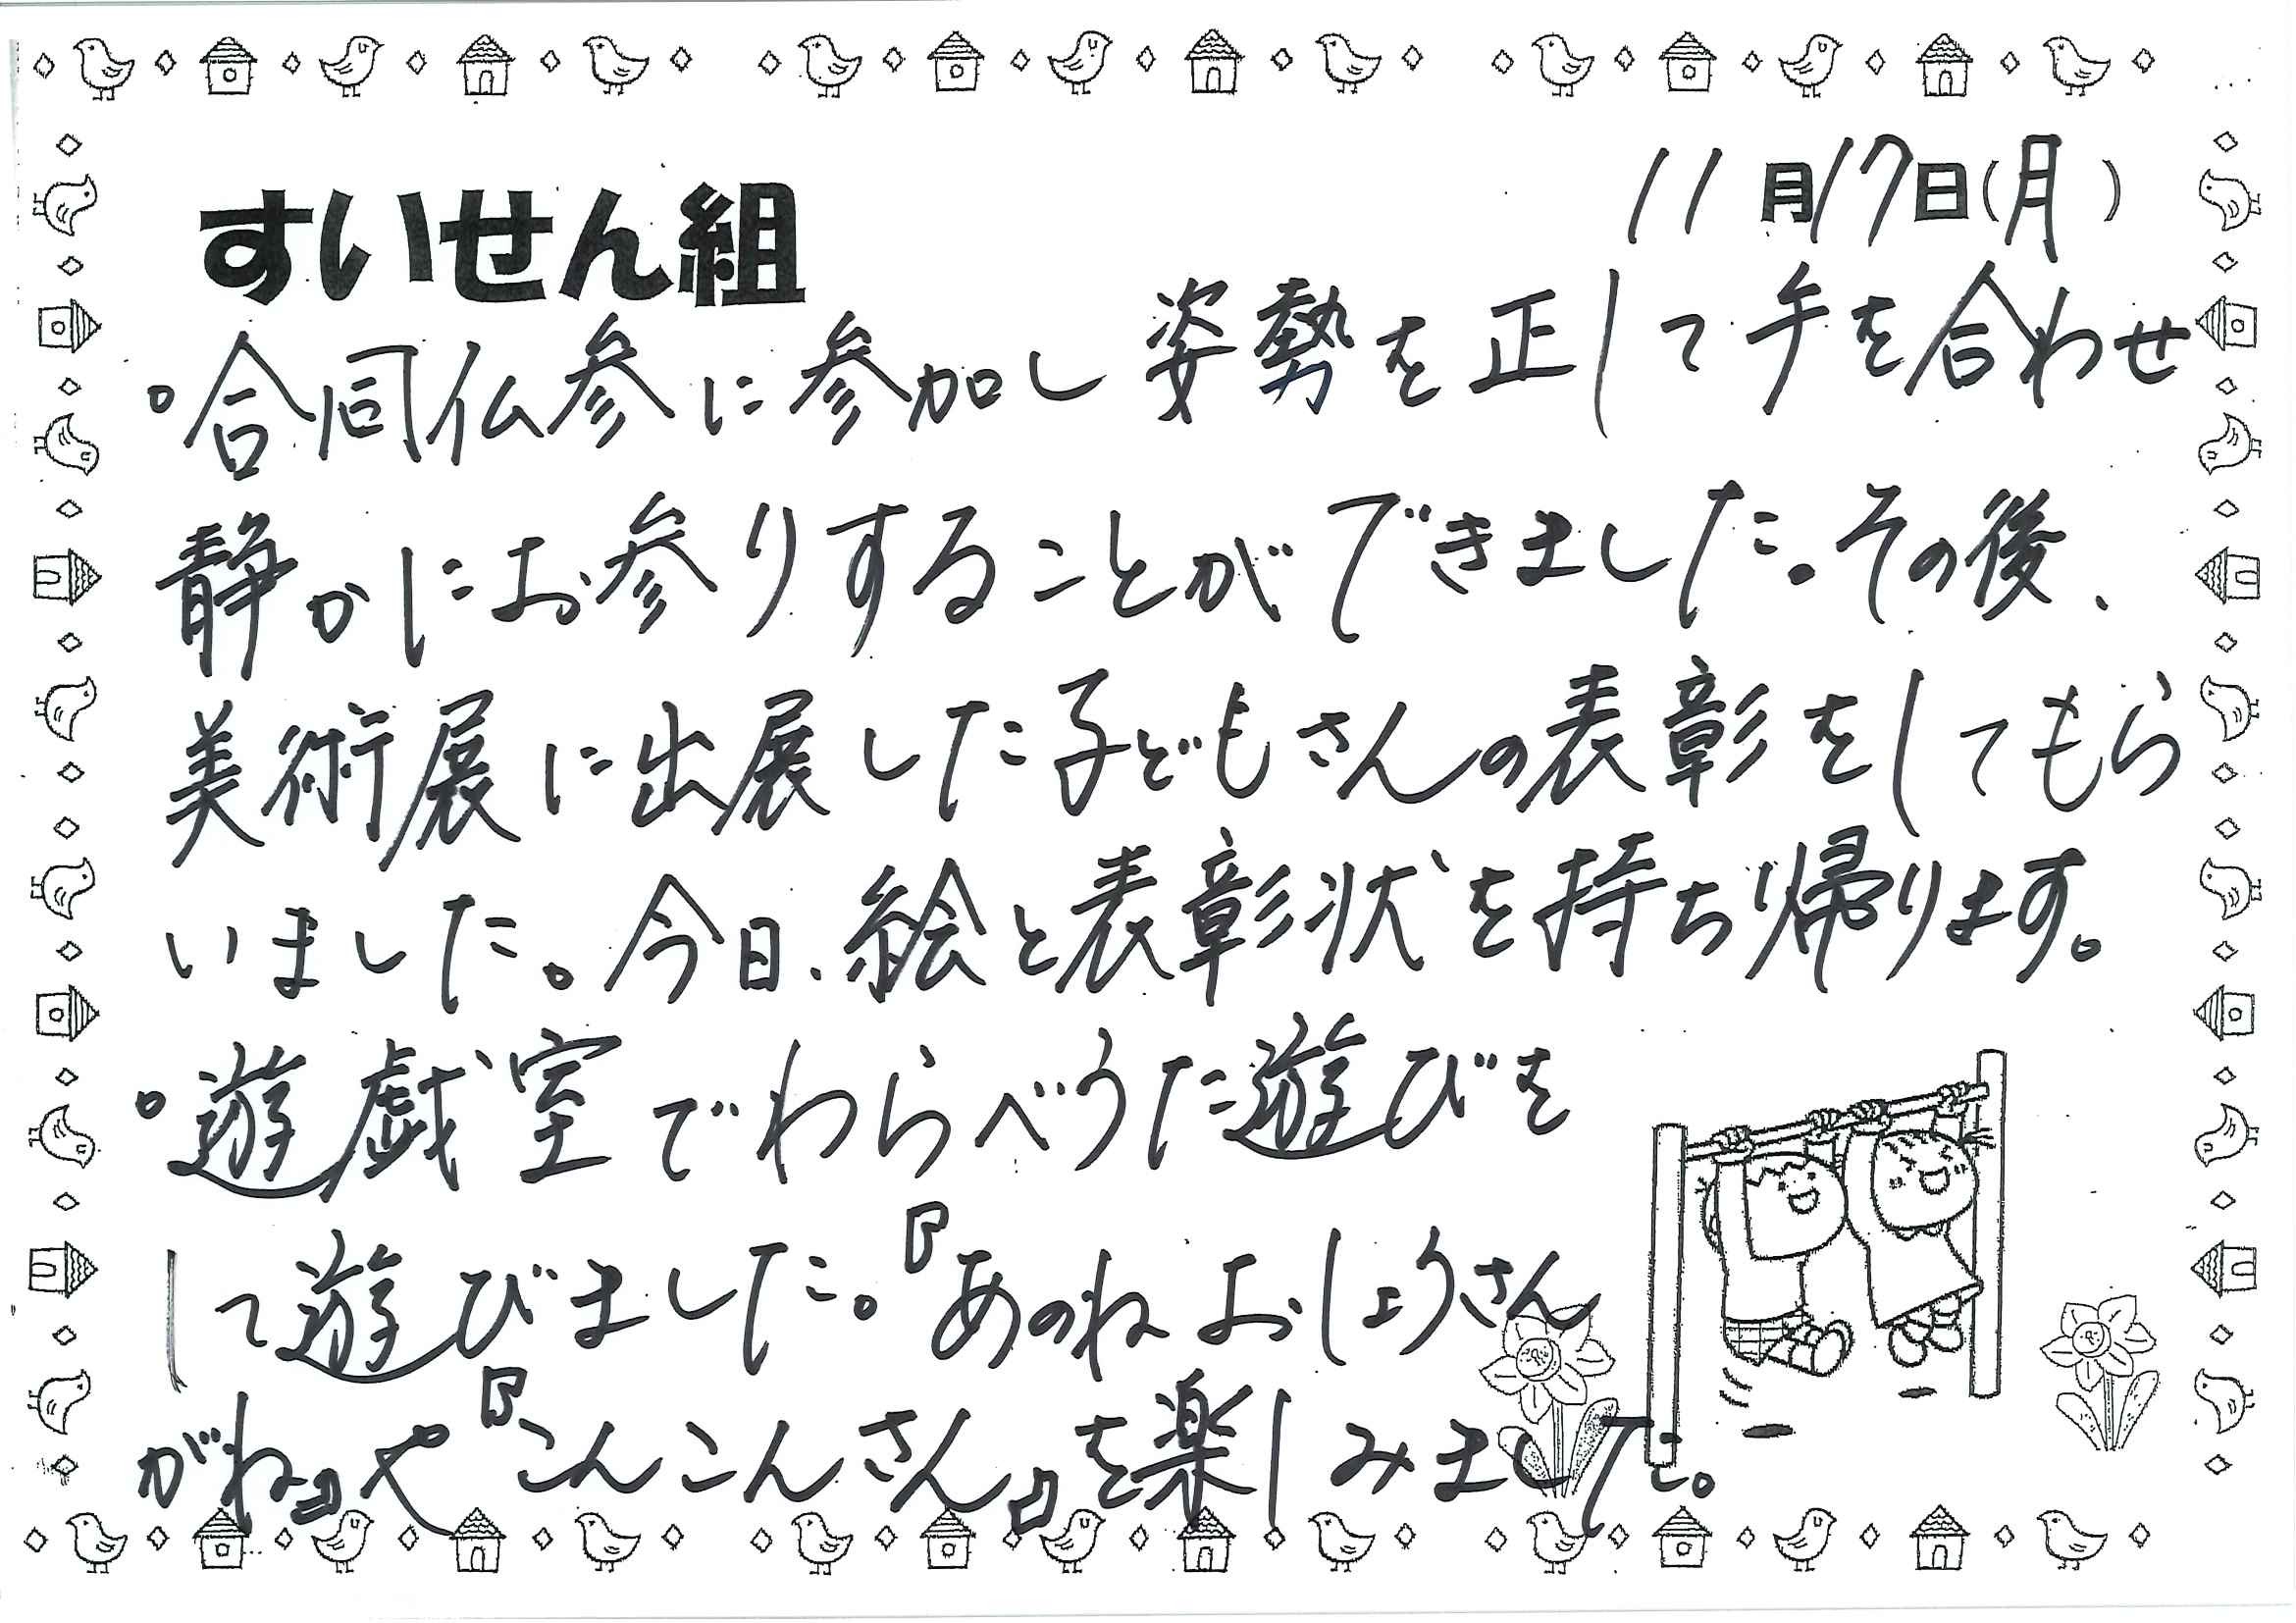 11月17日(月)
すいせん組
○合同仏参に参加し姿勢を正して手を合わせ
静かにお参りすることができました。その後、
美術展に出展した子どもさんの表彰をしてもら
いました。今日、絵と表彰状を持ち帰ります。
○遊戯室でわらべうた遊びを
して遊びました。『あのねおしょうさん
がね』や『こんこんさん』を楽しみました。